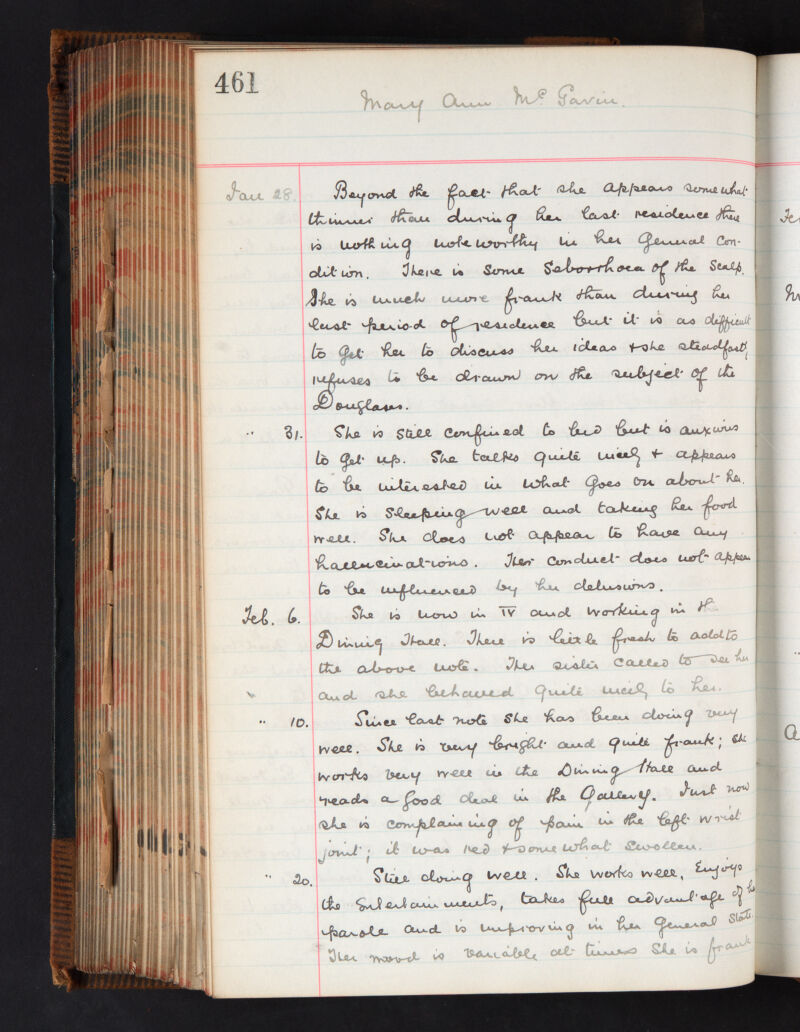 461
Mary Ann Mc Gavin.
Jan 28. Beyond the fact that she appears somewhat
thinner than during her last residence there
is nothing noteworthy in her General Con-
dition. There is some Seborrhoea of the Scalp.
She is much more frank than during her
last period of residence but it is as difficult
to get her to discuss her ideas & she steadfastly
refuses to be drawn on the subject of the
Douglases.
" 31. She is still confined to bed but is anxious
to get up. She talks quite nicely & appears
to be interested in what goes on about her.
She is sleeping well and taking her food
well. She does not appear to have any
hallucinations. Her conduct does not appear
to be influenced by her delusions.
Feb. 6. She is now in IV and working in the
Dining Hall. There is little fresh to add to
the above note. Her sister called to see her
and she behaved quite nicely to her.
" 10. Since last note she has been doing very
well. She is very bright and quite frank; she
works very well in the Dining Hall and
reads a good deal in the Gallery. Just now
she is complaining of pain in the left wrist
joint; it was red & somewhat swollen.
" 20. Still doing well. She works well, Enjoys
the Entertainments, takes full advantage of her
parole and is improving in her General State.
Her mood is variable at times she is frank